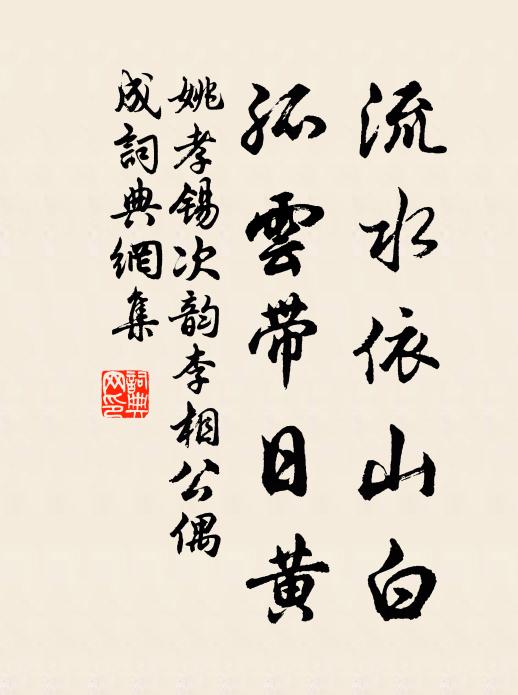 流水依山白
孤雲带日黄
姚孝锡次韵李相公偶
成詞典網集
詞典
网印